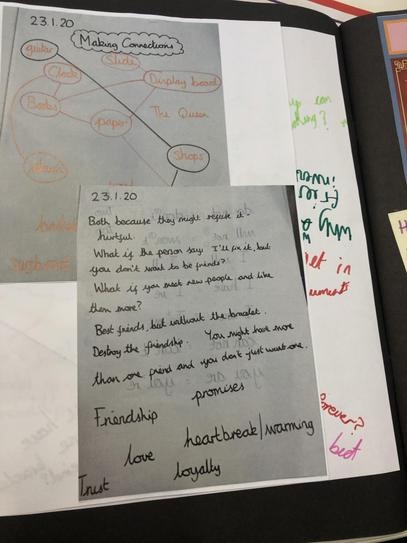 23.1.20
Making Connections
guitar
Slide
Clock
Display board
Books
The Queen
paper
Shops
23.1.20
Both because they might refuse it.
hurtful.
What if the person says I'll fix it, but
you don't want to be friends?
What if you meet new people, and like
them more?
Best friends, but without the bracelet.
Destroy the friendship You might have more
than one friend and you don't just want one.
promises
Friendship
heartbreak/warming
love
loyalty
Trust
can
why
let in
forever?